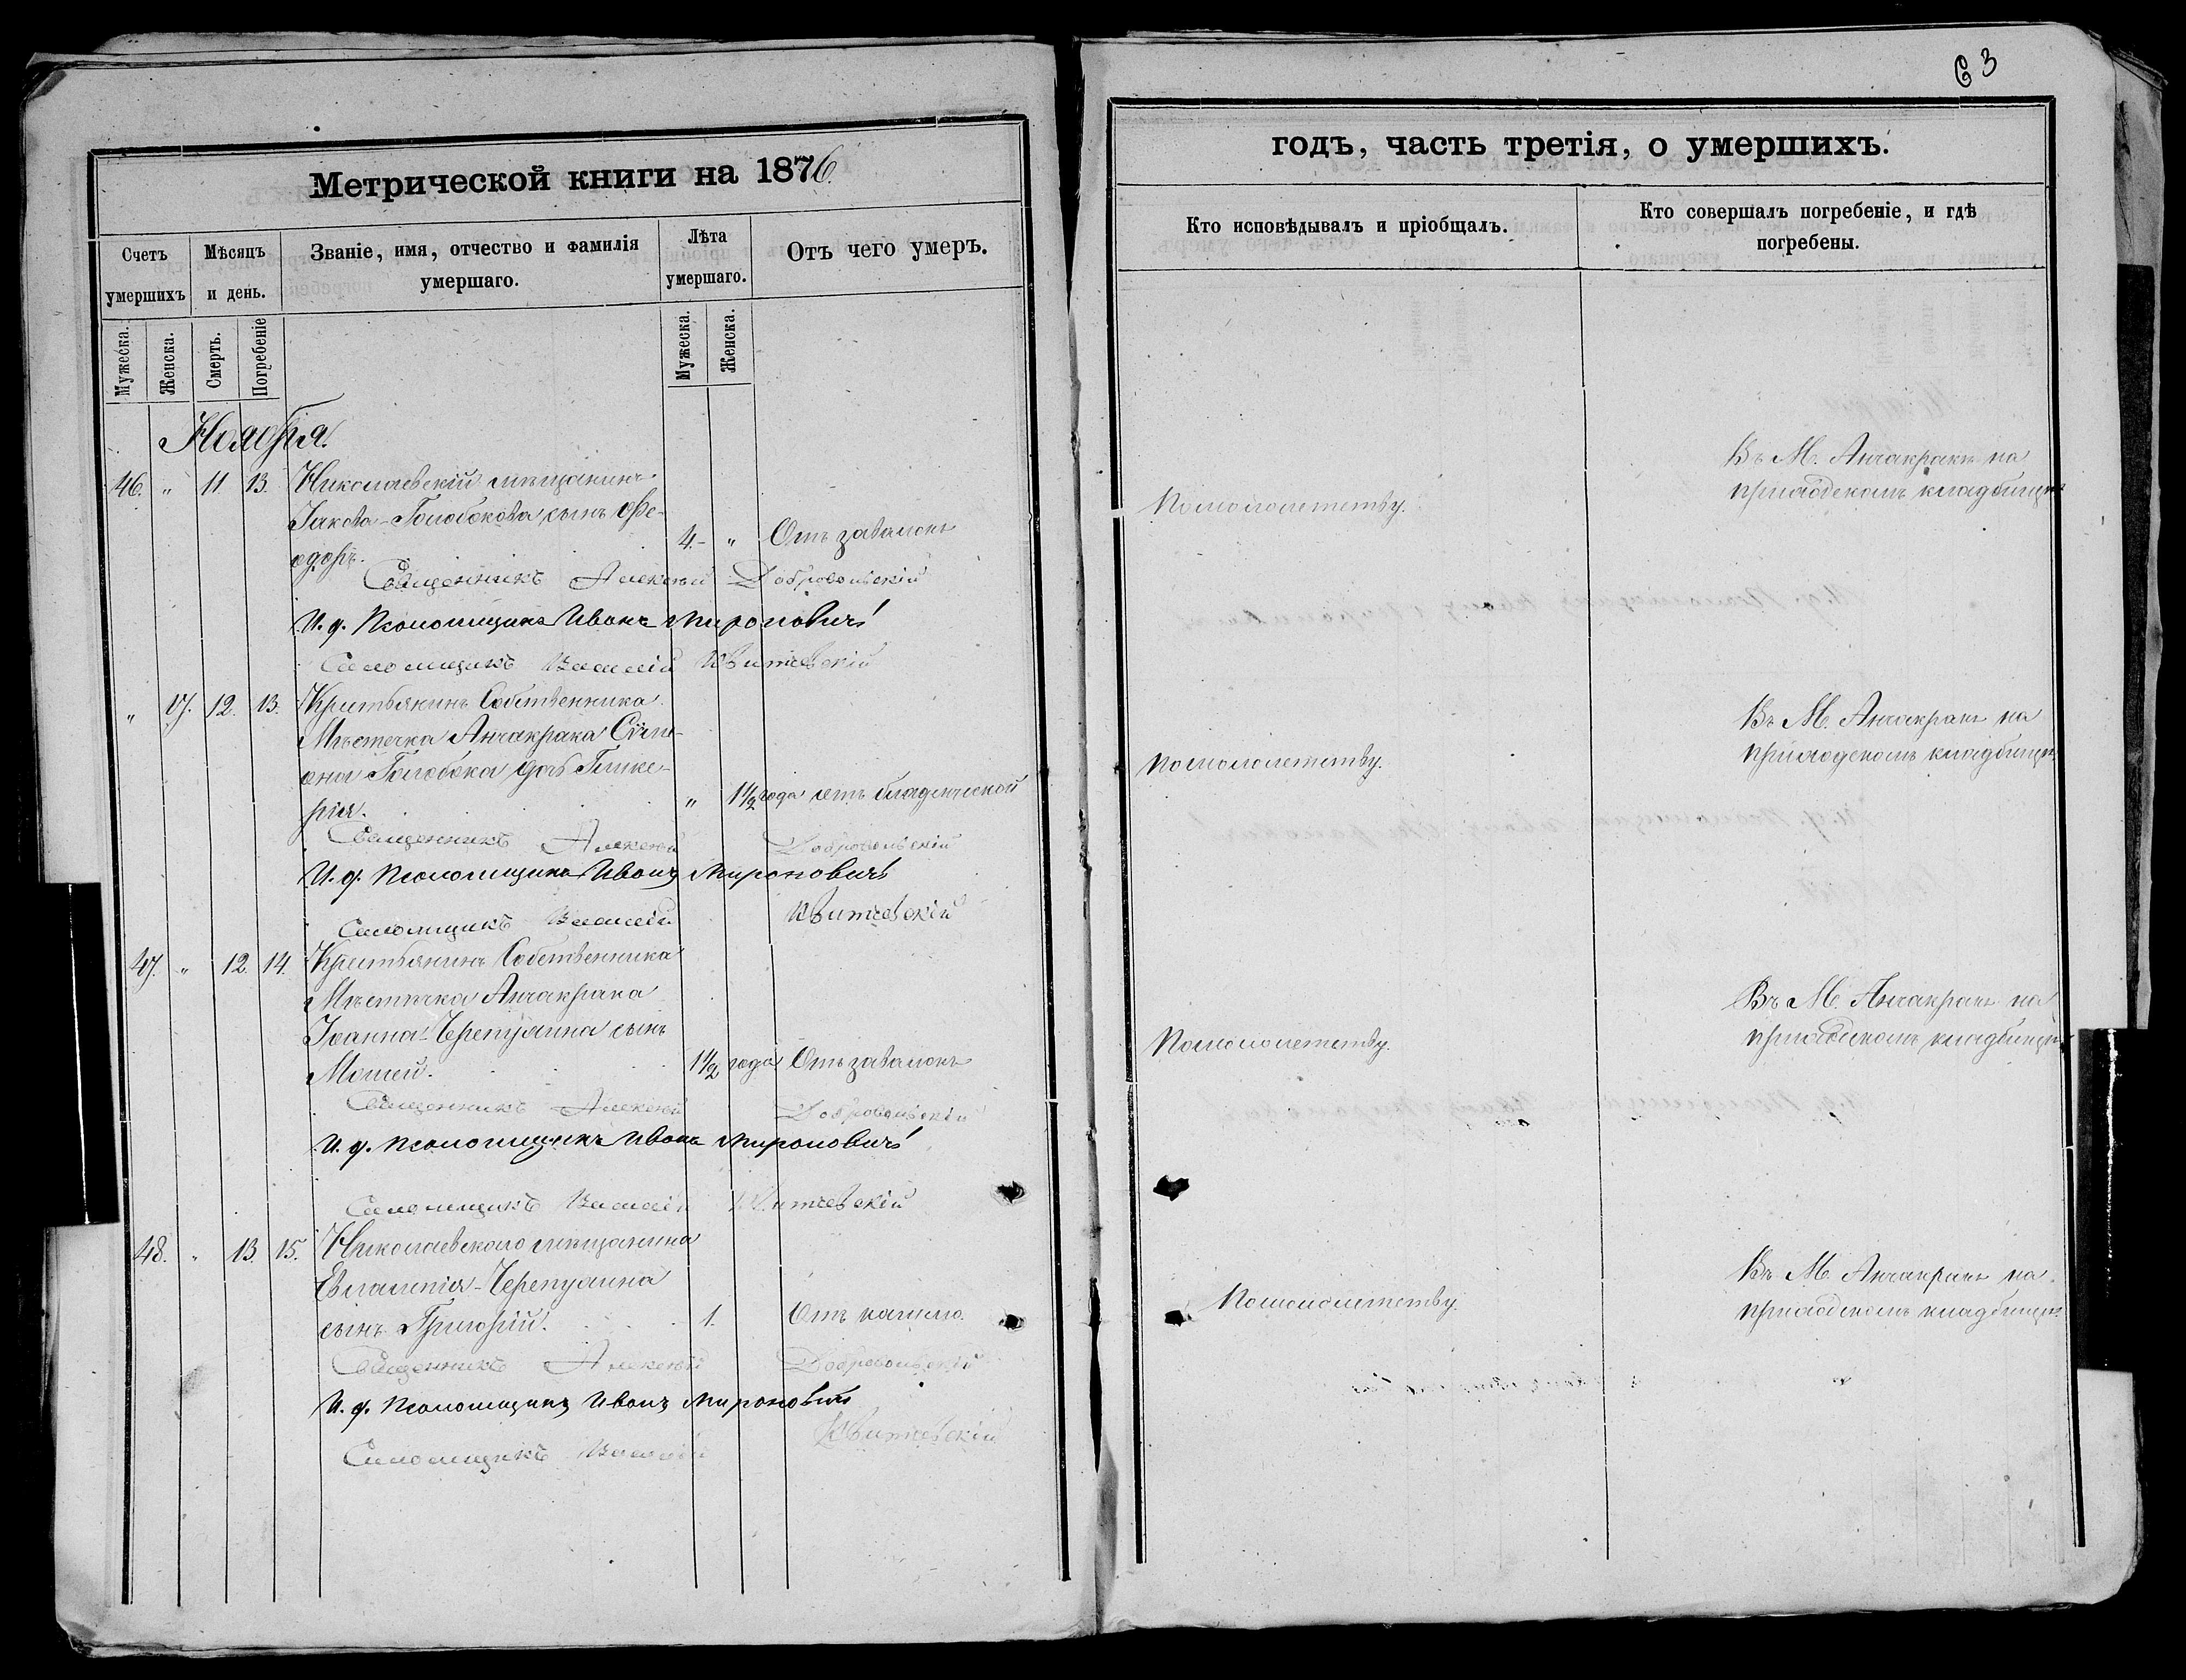 63
Метрической книги на 1876
годъ, часть третія, о умершихъ.
Счетъ умершихъ
Мѣсяцъ и день.
Званіе, имя, отчество и фамилія умершаго.
Лѣта умершаго.
Отъ чего умеръ.
Кто исповѣдывалъ и пріобщалъ.
Кто совершалъ погребеніе, и гдѣ погребены.
Мужеска.
Женска.
Смерть.
Погребеніе
Мужеска.
Женска.
Ноября.
46. " 11 13. Николаевскій мѣщанинъ
Іакова Голобокова сынъ Ѳе-
одоръ. 4. " Отъ завалокъ
По малолѣтству.
Въ М. Анчакракѣ на
приходскомъ кладбищѣ
Священникъ Алексѣй Добровольскій
И. д. Псаломщика Иванъ Мироновичъ
Псаломщикъ Василій Квитчевскій
" 17. 12. 13. Крестьянинъ Собственника
Мѣстечка Анчакрака Сѵме-
она Голобока дочь Глике-
рія. " 1 1/2 года отъ младенческой
По малолѣтству.
Въ М. Анчакракѣ на
приходскомъ кладбищѣ
Священникъ Алексѣй Добровольскій
И. д. Псаломщика Иванъ Мироновичъ
Псаломщикъ Василій Квитчевскій
47. " 12. 14. Крестьянинъ Собственника
Мѣстечка Анчакрака
Іоанна Черепухина сынъ
Моисей. 1 1/2 года Отъ завалокъ
По малолѣтству.
Въ М. Анчакракѣ на
приходскомъ кладбищѣ
Священникъ Алексѣй Добровольскій
И. д. Псаломщика Иванъ Мироновичъ
Псаломщикъ Василій Квитчевскій
48. " 13. 15. Николаевского мѣщанина
Евлампія Черепухина
сынъ Григорій. 1. Отъ кашлю.
По малолѣтству.
Въ М. Анчакракѣ на
приходскомъ кладбищѣ
Священникъ Алексѣй Добровольскій
И. д. Псаломщика Иванъ Мироновичъ
Псаломщикъ Василій Квитчевскій